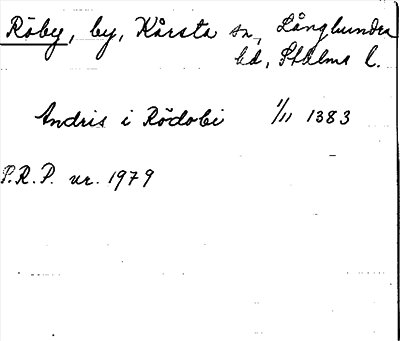 Röby, by, Kårsta sn, Långhundra
hd, Sthlms l.
Andris i Rödobi 1/11 1383
P.R.P. nr. 1979